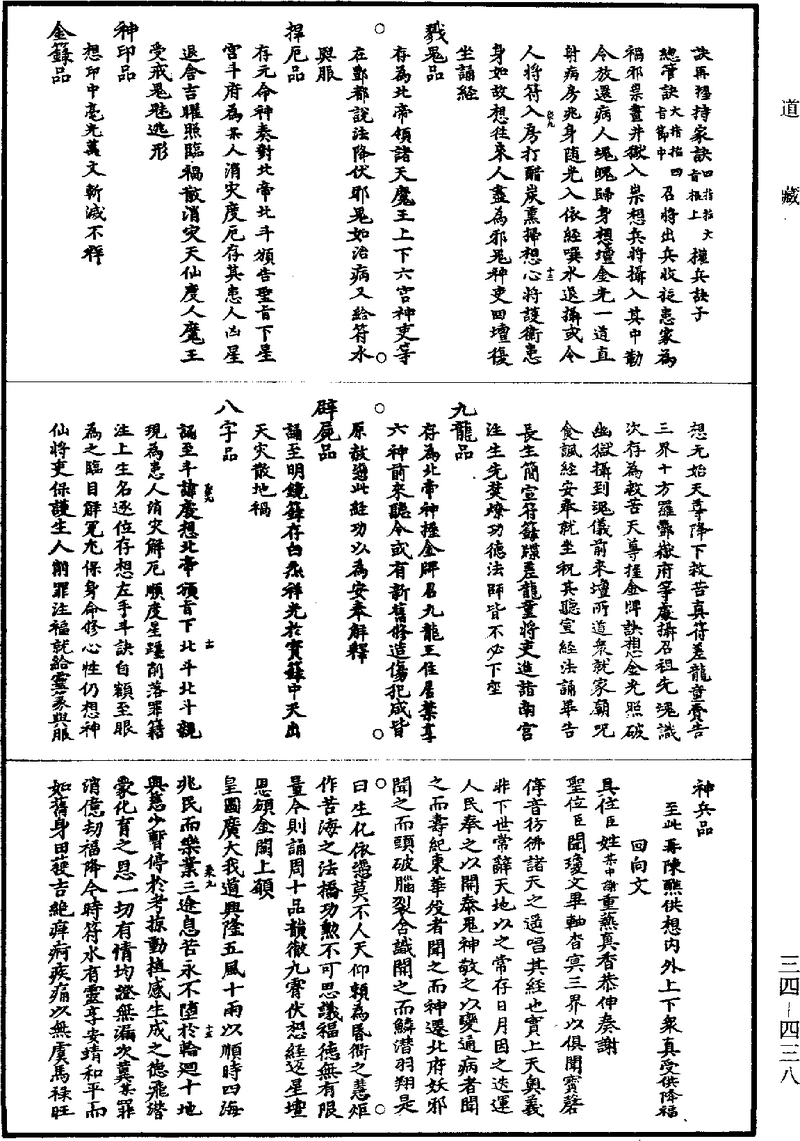 道藏
訣再揑持家訣四指指大指根上櫂兵訣子
總管訣大指指四指節中召將出兵收捉患家為
禍邪祟畫井獄入祟想兵將攝入其中勒
令放還病人魂魄歸身想壇金光一道直
射病房兆身随光入依經噀水退攝或令
人將符入房打醋炭熏掃想心將護衛患
身如故想往來人盡為邪鬼神吏回壇復
坐誦經
戮鬼品
存為北帝領諸天魔王上下六宫神吏等
在酆都說法降伏邪鬼如治病又給符水
與服
捍厄品
存元命神奏對北帝北斗頒告聖旨下星
宮斗府為某人消灾度厄存其患人凶星
退舍吉曜照臨禍散消灾天仙度人魔王
受戒鬼魅逃形
神印品
想印中毫光萬丈斬滅不祥
金籙品
想元始天尊降下救苦真符差龍童賫告
三界十方羅酆嶽府等處攝召祖先魂識
次存為救苦天尊揑金牌訣想金光照破
幽獄攝到魂儀前來壇所道衆就家願咒
食諷經安奉就坐祝其聽宣經法誦畢告
長生簡宣符籙牒差龍童將吏進詣南宮
注生先焚燎功德法師皆不必下座
九龍品
存為北帝神揑金牌召九龍王住居業享
六神前來聽令或有新舊修造傷犯咸皆
原赦憑此經功以為安奉解釋
辟屍品
誦至明鏡籙存白炁祥光於寳籙中天出
天灾散地禍
八字品
誦至斗諱處想北帝頒旨下北斗北斗親
現為患人消灾解厄順度星躔削落罪籍
注上生名逐位存想左手斗訣自額至眼
為之臨目解冤尤保身命修心性仍想神
仙將吏保護生人削罪注福就給靈篆與服
神兵品
至此再陳醮供想内外上下衆真受供降福
回向文
具位臣姓某中謝重爇真香恭伸奏謝
聖位臣聞瓊文畢軸杳㝠三界以俱聞寳磬
停音彷彿諸天之遥唱其經也實上天奥義
非下世常辭天地以之常存日月因之迭運
人民奉之以開泰鬼神敬之以變通病者聞
之而壽紀東華歿者聞之而神遷北府妖邪
聞之而頭破腦裂含識聞之而鱗潜羽翔是
曰生化依憑莫不人天仰賴為昬衢之慧炬
作苦海之法橋功勲不可思議福德無有限
量今則誦周十品韻徹九霄伏想經返星壇
恩頒金闕上願
皇圖廣大我道興隆五風十雨以順時四海
兆民而樂業三途息苦永不墮於輪廻十地
興慈少暫停於考掠動植感生成之德飛潜
蒙化育之恩一切有情均證無漏次冀某罪
消億劫福降今時符水有靈享安靖和平而
如舊身田發吉絶痒痾疾痛以無虞馬禄旺
三四—四三八